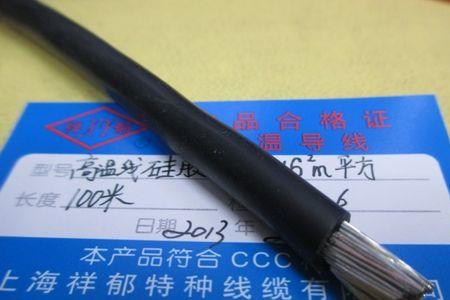 祥郁牌
品合格证
温导线
型号 高温线硅胶 16²m平方
长度 100米 6
日期 2013年
本产品符合CCC
上海祥郁特种线缆有限